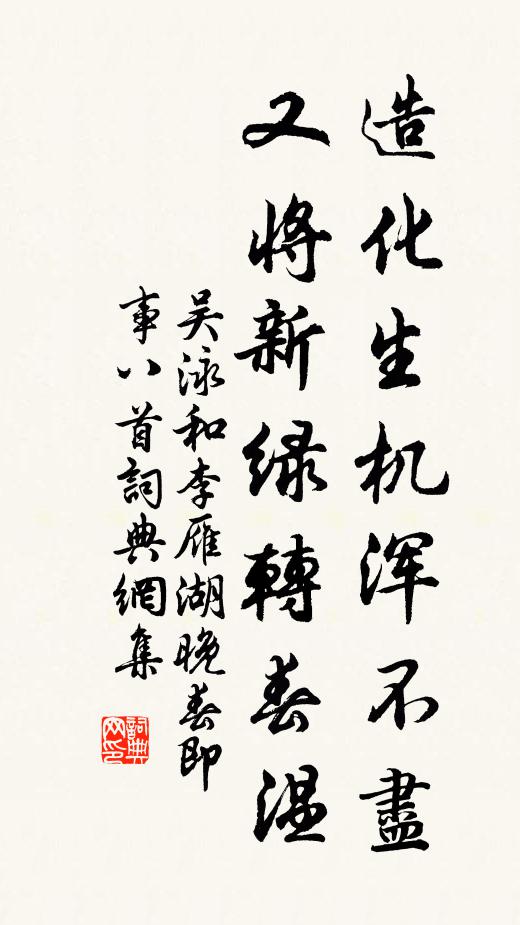 造化生机浑不盡
又將新緑轉春温
吴泳和李雁湖晚春即
事八首詞典網集
詞典
网印